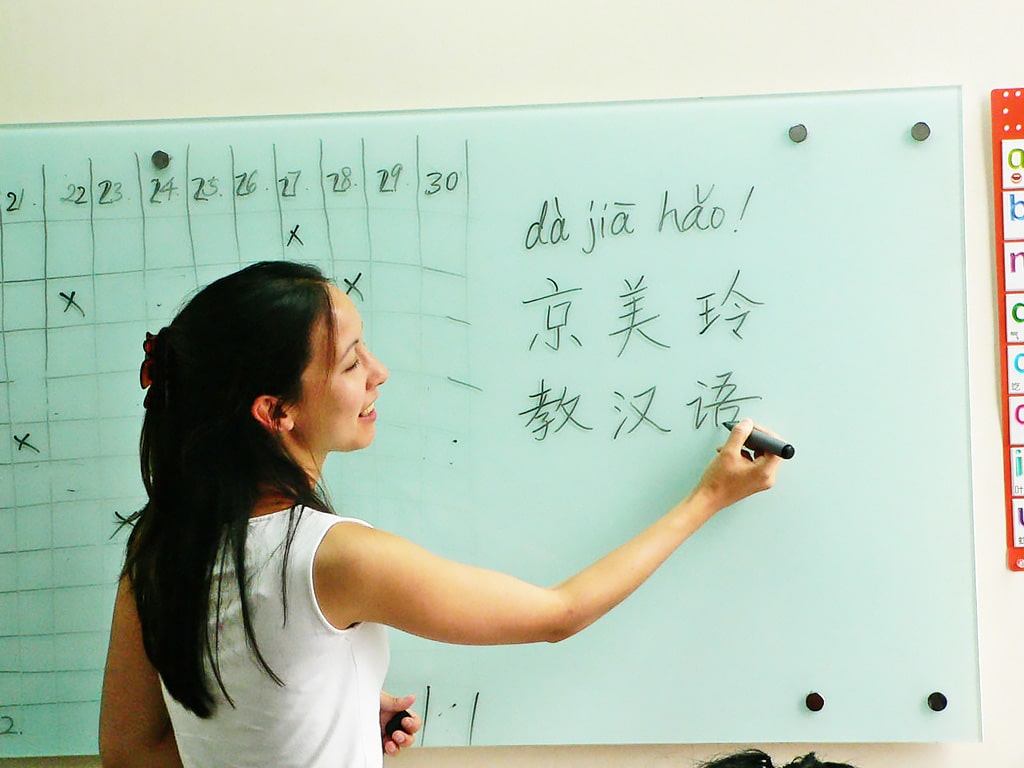 21. 22 23. 24. 25. 26. 27. 28. 29. 30
x
x x
x
x
2.
dà jiā hǎo!
京美玲
教汉语
a
b